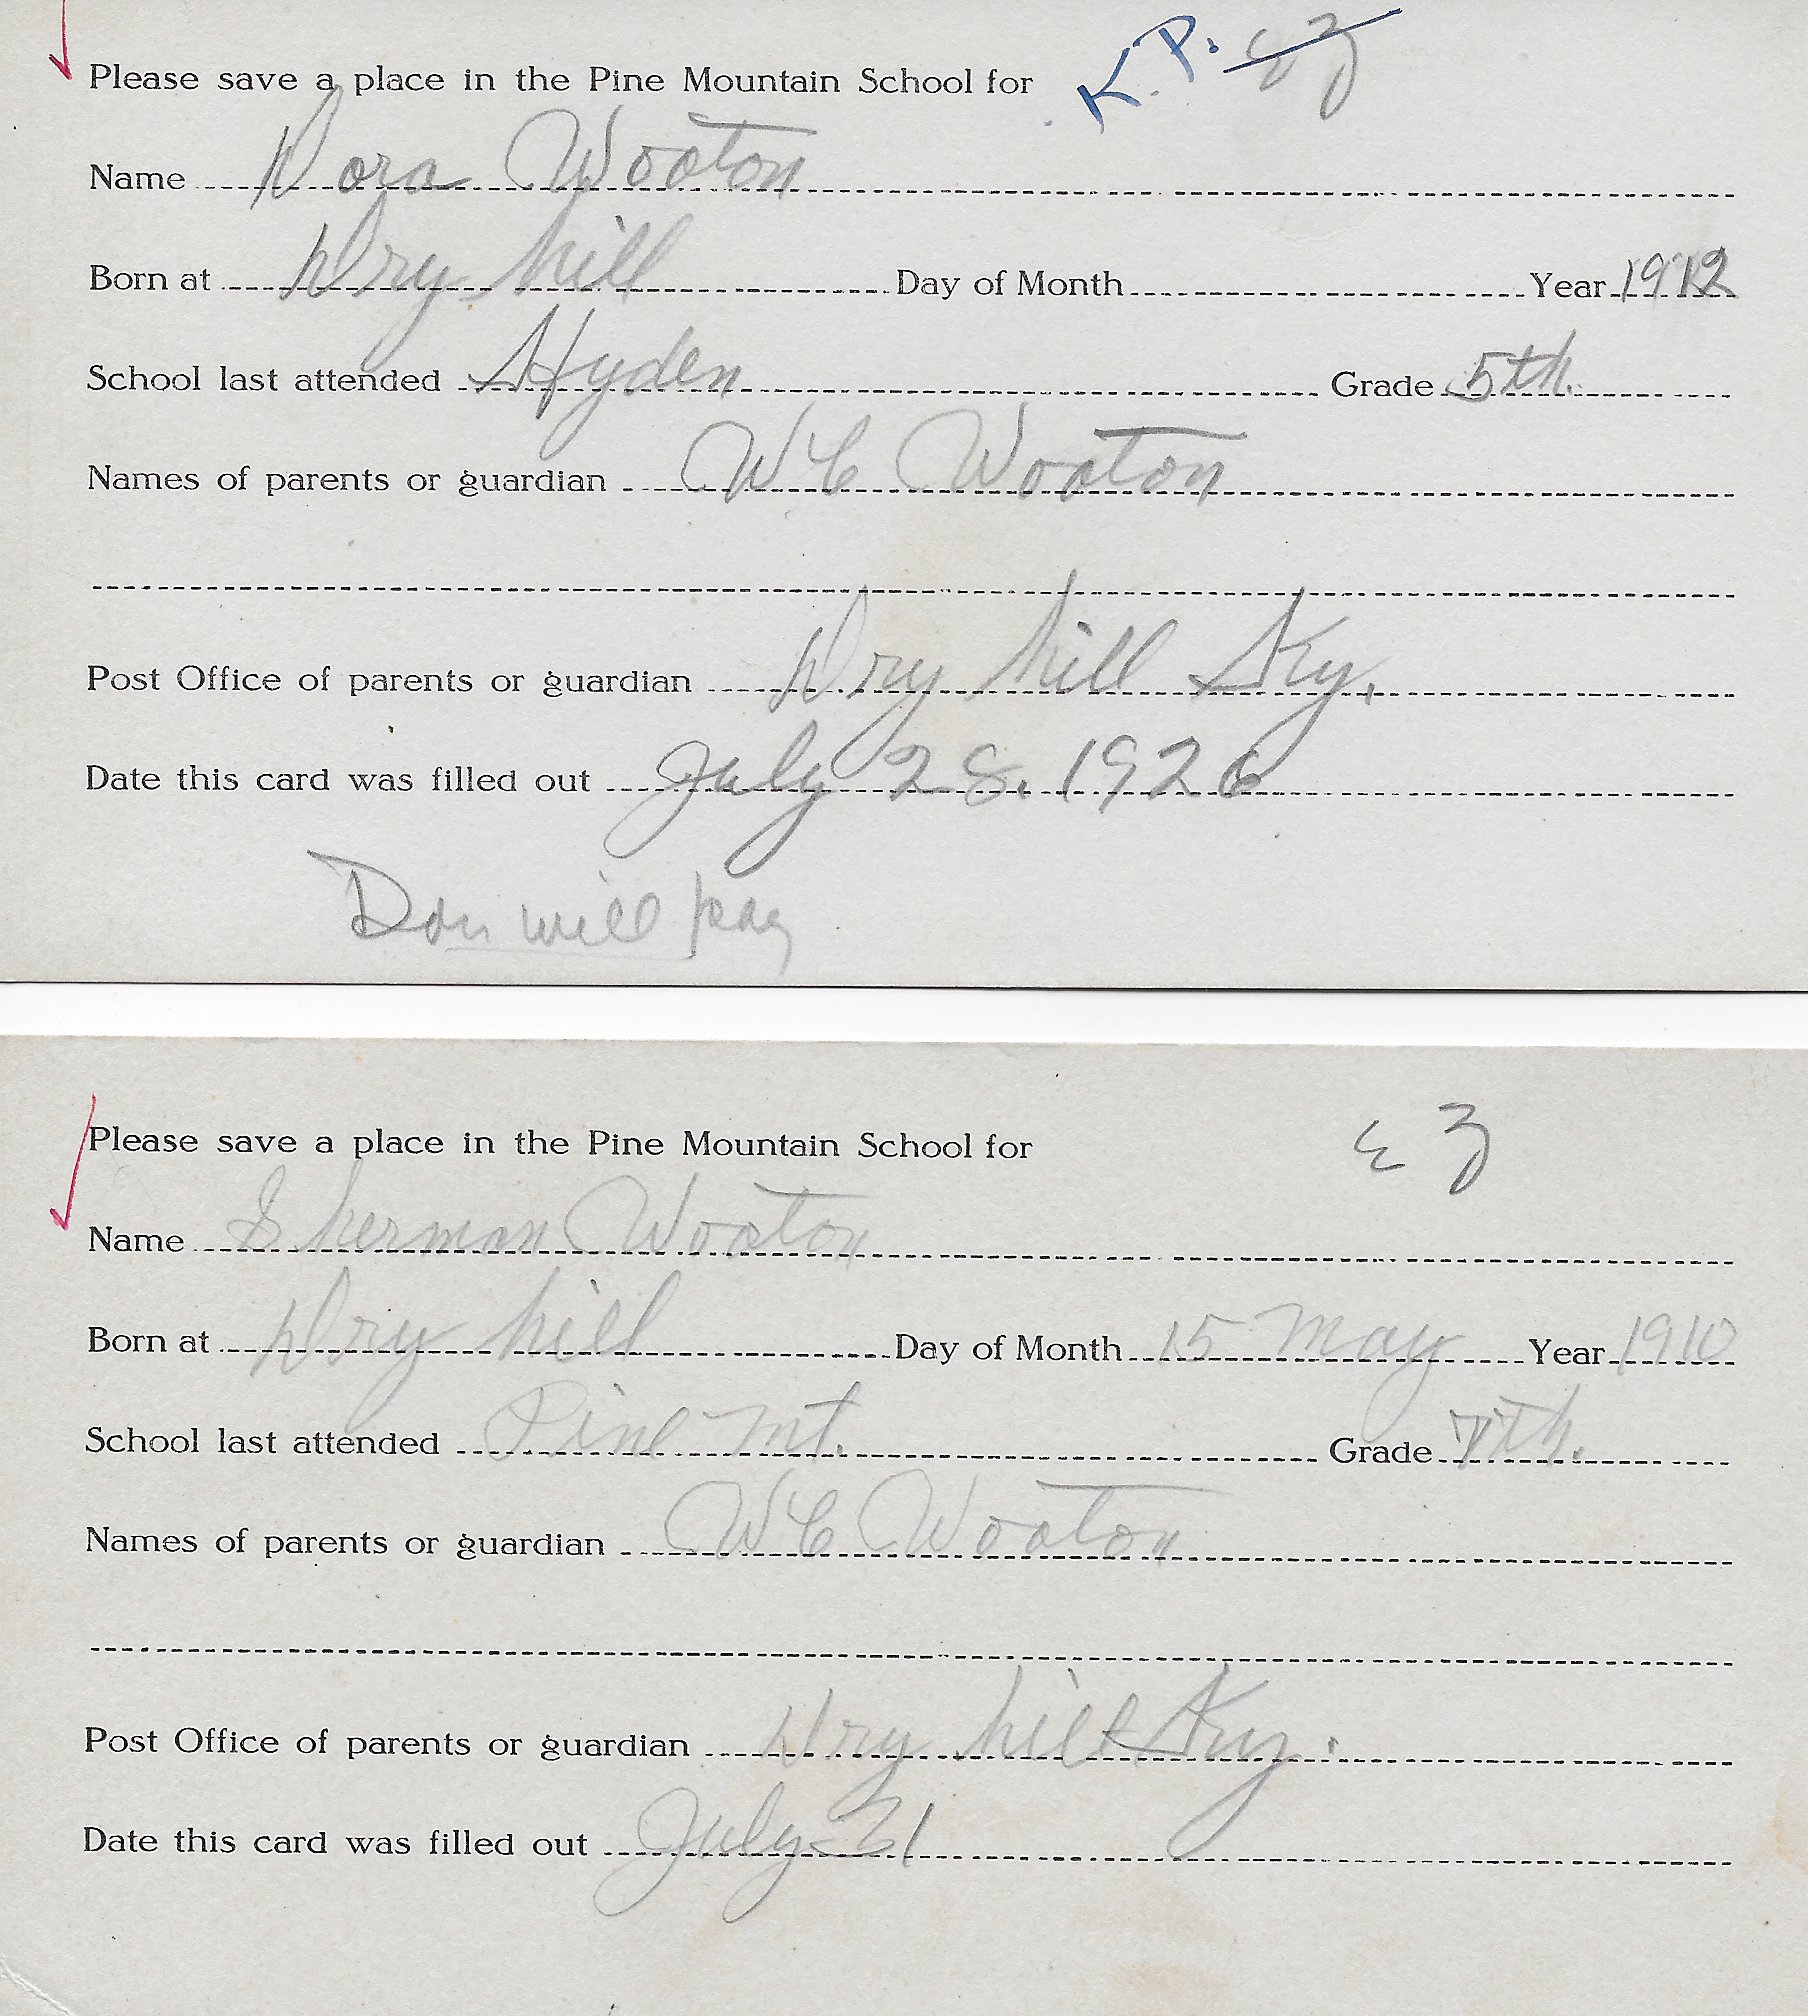 Please save a place in the Pine Mountain School for K.P. EZ
Name Dora Wooton
Born at Dry hill Day of Month Year 1912
School last attended Hyden Grade 5th.
Names of parents or guardian W C Wooton
Post Office of parents or guardian Dry hill Ky.
Date this card was filled out July 28. 1926
Don will pay
Please save a place in the Pine Mountain School for EZ
Name Sherman Wooton
Born at Dry hill Day of Month 15 May Year 1910
School last attended Pine Mt. Grade 7th.
Names of parents or guardian W C Wooton
Post Office of parents or guardian Dry hill Ky.
Date this card was filled out July 31